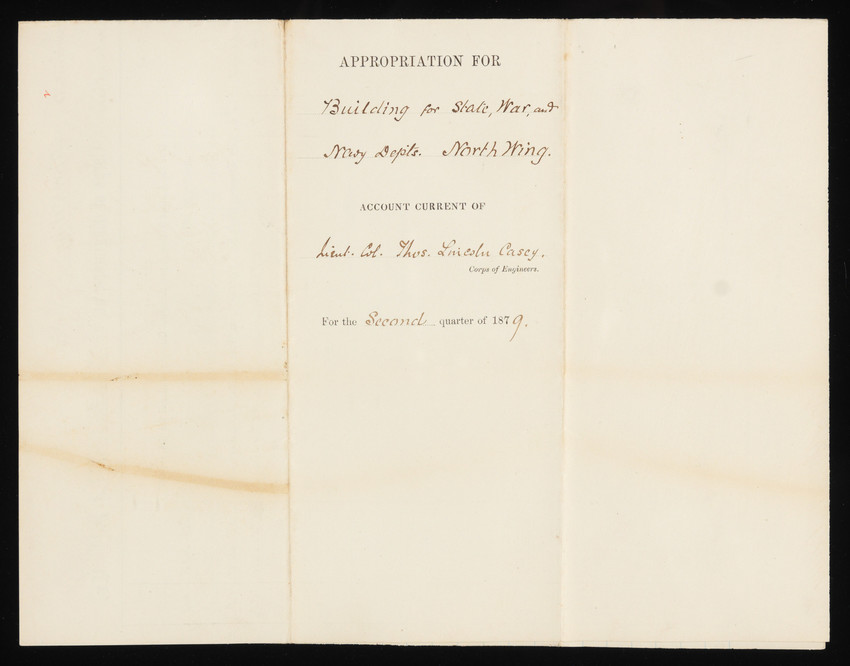 APPROPRIATION FOR
Building for State, War, and
Navy Depts. North Wing.
ACCOUNT CURRENT OF
Lieut. Col. Thos. Lincoln Casey.
Corps of Engineers.
For the Second quarter of 1879.